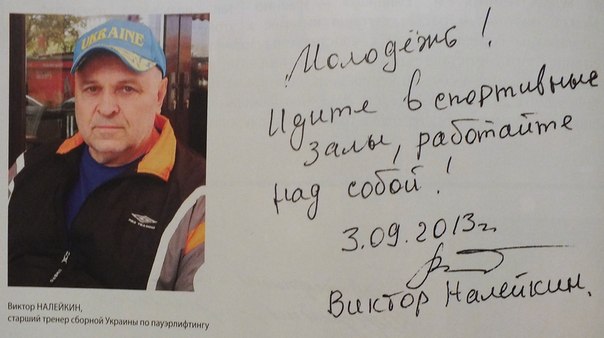 UKRAINE
Молодёжь!
Идите в спортивные
залы, работайте
над собой!
3.09.2013г.
Виктор Налейкин.
Виктор НАЛЕЙКИН,
старший тренер сборной Украины по пауэрлифтингу